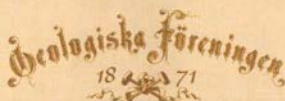 Geologiska Föreningen
18 71